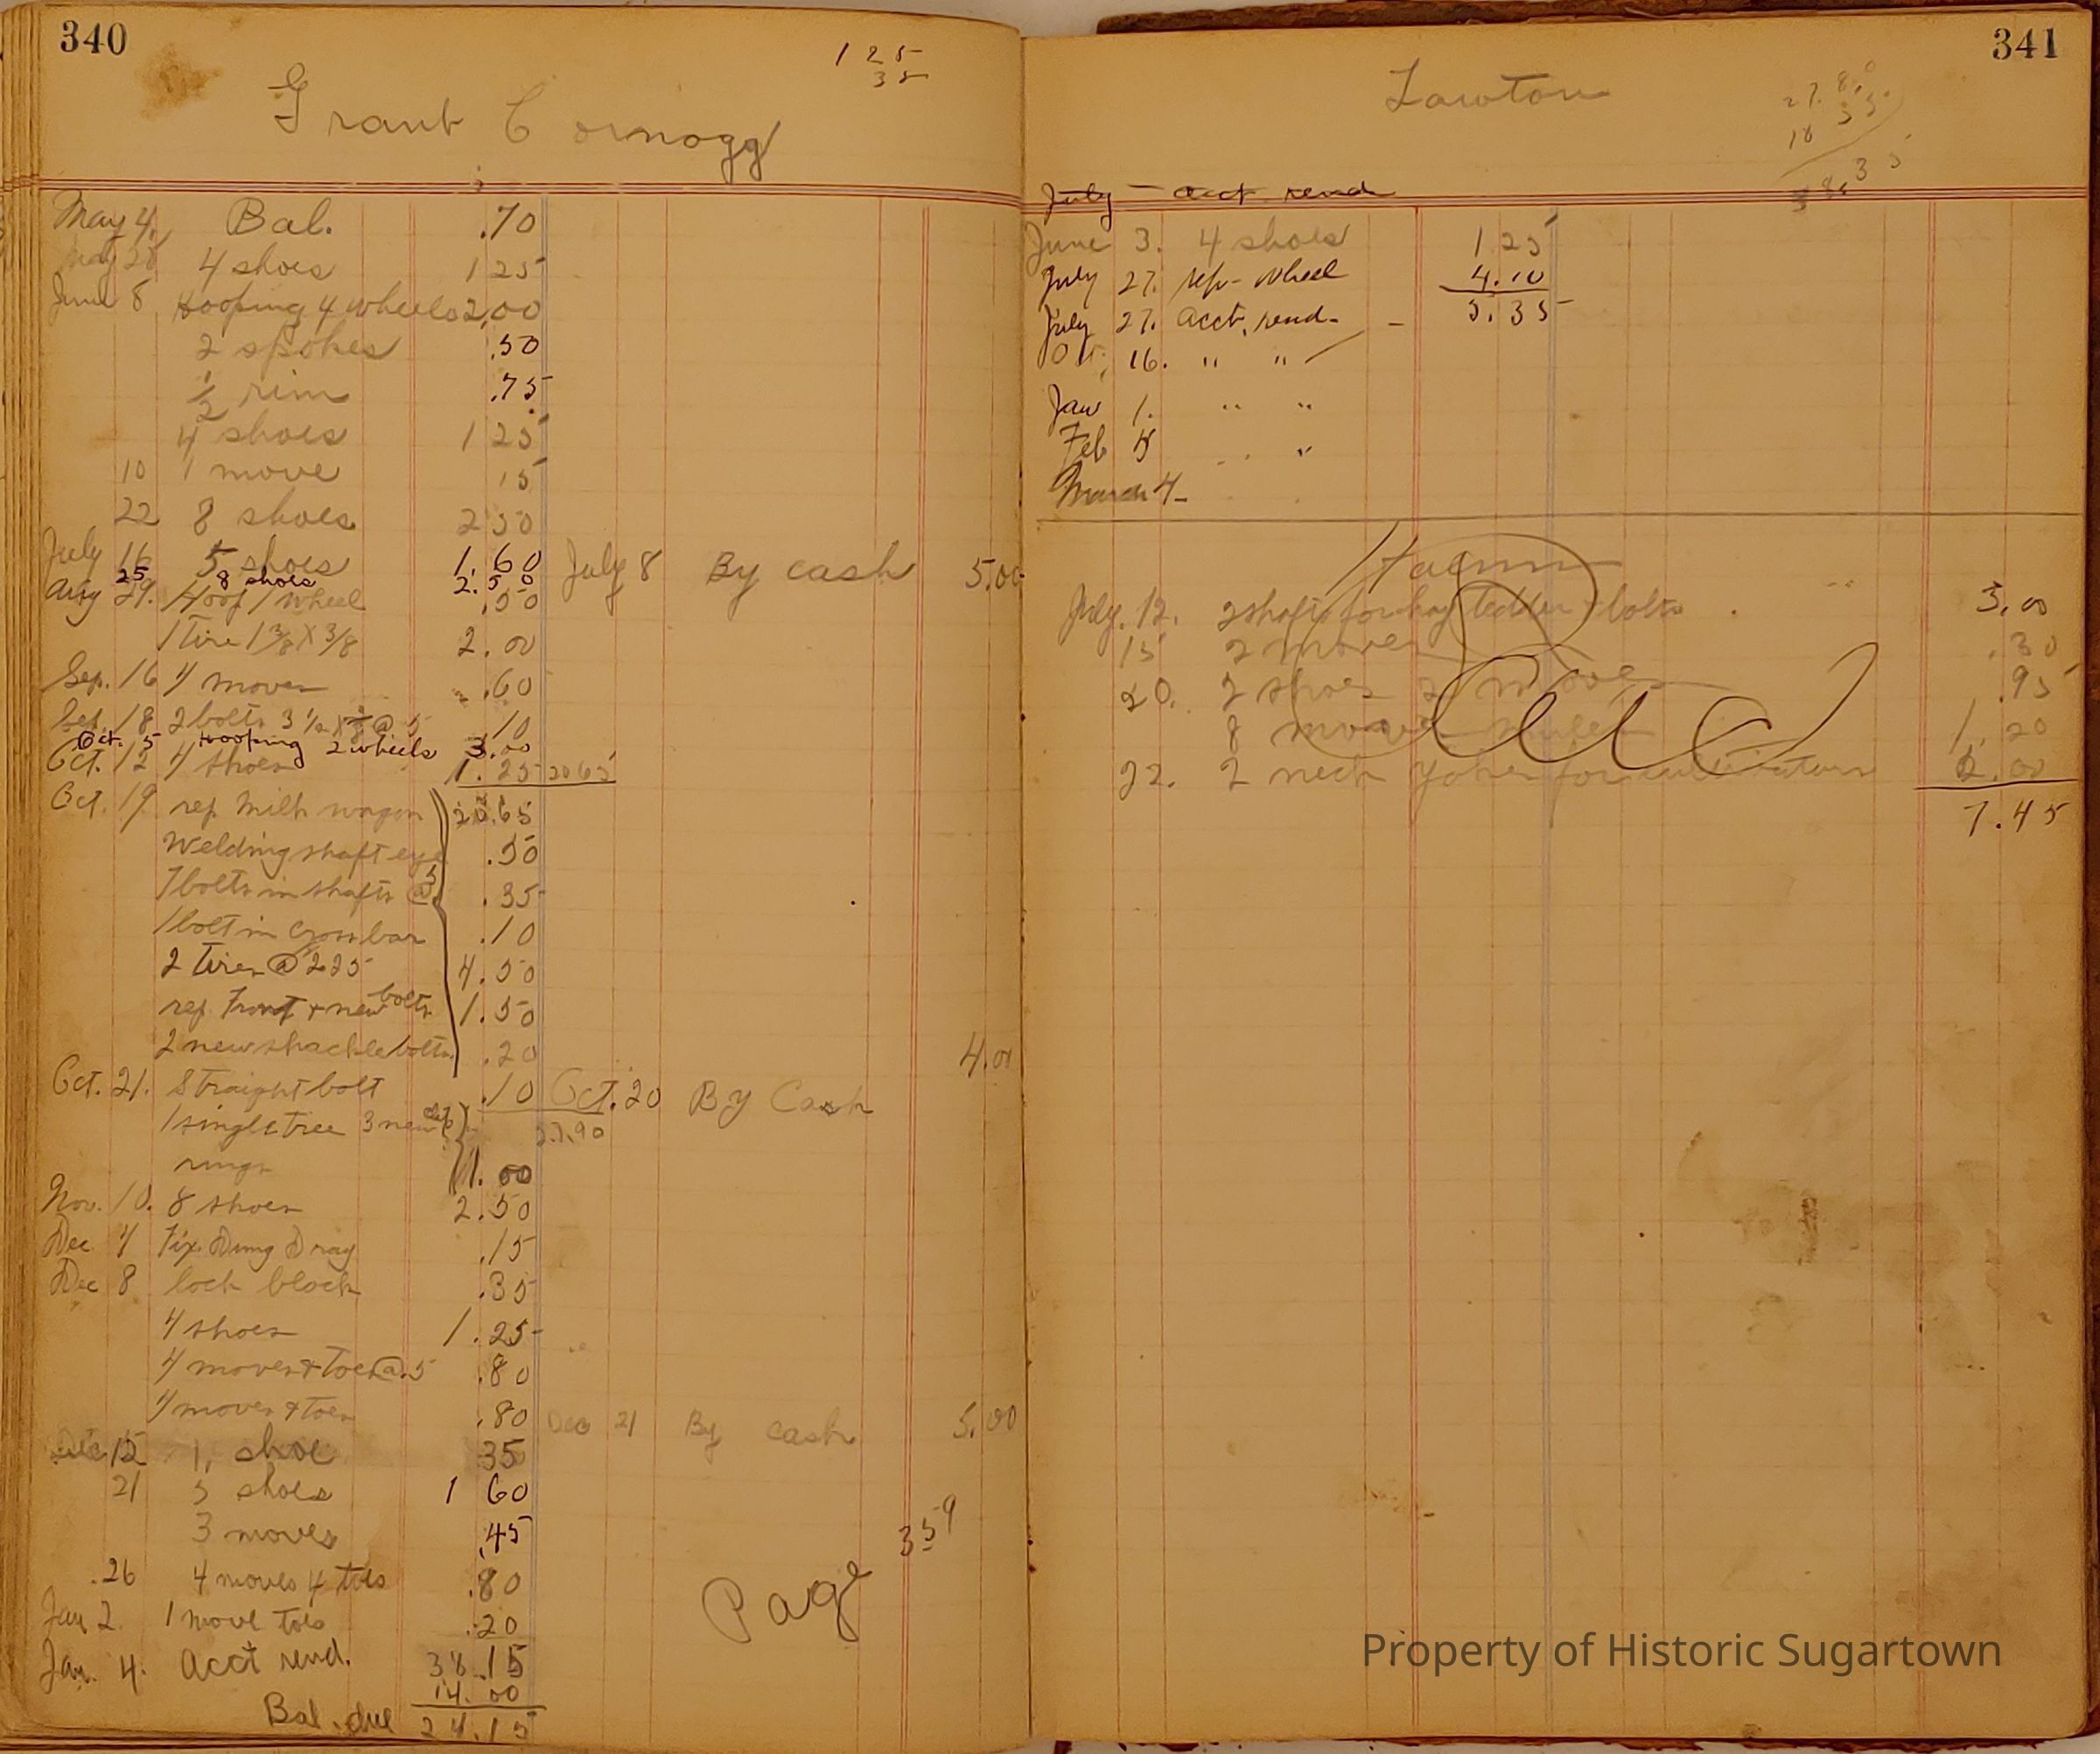 340
1 25
35
Grant Cornogg
May 4. Bal. .70
May 28 4 shoes 1 25
June 8 Hooping 4 wheels 2,00
2 spokes .50
1/2 rim .75
4 shoes 1 25
10 1 move 15
22 8 shoes 2 50
July 16 5 shoes 1.60 July 8 By cash 5.00
25 8 shoes 2.50
Aug 29. Hoof 1 wheel .50
1 Tire 1 3/8 X 3/8 2.00
Sep. 16 4 moves .60
Sep. 18 2 bolts 3 1/2 @ 5 10
Oct. 5 Hooping 2 wheels 3.00
Oct. 12 4 shoes 1.25 20 65
Oct. 19. rep Milk wagon 20.65
Welding shaft eye .50
7 bolts in shafts @ 5 .35
1 bolt in Crossbar .10
2 Tires @ 2 25 4.50
rep Front + new bolts 1.50
2 new shackle bolts .20
4.00
Oct. 21. Straight bolt .10 Oct. 20 By Cash
1 singletree 3 new
27.90
rings 1.00
Nov. 10. 8 shoes 2.50
Dec 4 Fix Dung Drag .15
Dec 8 lock block .35
4 shoes 1.25
4 moves + toes @ 5 .80
4 moves + toes .80 Dec 21 By cash 5.00
Dec 12 1 shoe 35
21 5 shoes 1 60
3 moves .45
359
.26 4 moves 4 toes .80
Page
Jan 2. 1 move toes .20
Jan. 4. Acct rend. 38.15
14.00
Bal. due 24.15
341
Lawton
27.80
10 55
38.35
July - acct. rend
June 3. 4 shoes 1 25
July 27. rep- wheel 4.10
July 27. acct. rend- - 5.35
Oct. 16. " "
Jan 1. " "
Feb 5 "
March 4-
July. 12. 2 shafts for hay tedder + bolts 3.00
15 2 moves .30
20. 2 shoes 2 moves .95
8 moves mules 1.20
22. 2 neck yokes for cultivators 2.00
7.45
Property of Historic Sugartown